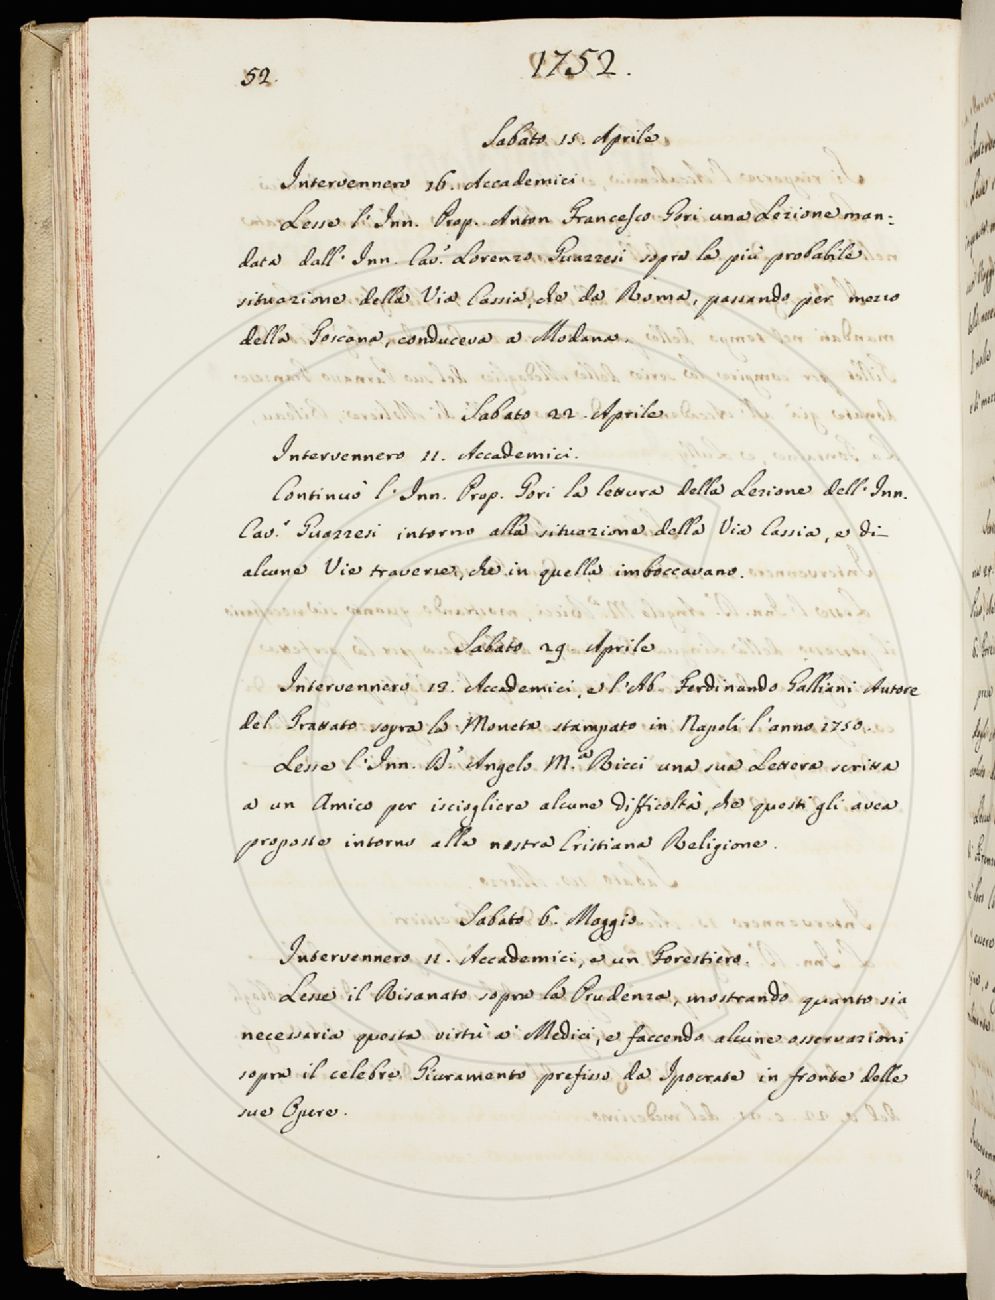 52.
1752.
Sabato 15. Aprile
Intervennero 16. Accademici
Lesse l'Inn. Prop. Anton Francesco Gori una Lezione man=
data dall'Inn. Cav.r Lorenzo Guazzesi sopra la più probabile
situazione della Via Cassia, che da Roma, passando per mezzo
della Toscana, conduceva a Modana.
Sabato 22. Aprile
Intervennero 11. Accademici.
Continuò l'Inn. Prop. Gori la lettura della Lezione dell'Inn.
Cav.r Guazzesi intorno alla situazione della Via Cassia, e di
alcune Vie traverse, che in quella imboccavano.
Sabato 29. Aprile
Intervennero 12. Accademici, e l'Ab. Ferdinando Galliani Autore
del Trattato sopra la Moneta stampato in Napoli l'anno 1750.
Lesse l'Inn. Angelo M.a Ricci una sua Lettera scritta
a un Amico per isciogliere alcune difficoltà, che questi gli avea
proposte intorno alla nostra Cristiana Religione.
Sabato 6. Maggio
Intervennero 11. Accademici, e un Forestiero.
Lesse il Risanato sopra la Prudenza, mostrando quanto sia
necessaria questa virtù a' Medici, e faccendo alcune osservazioni
sopra il celebre Giuramento prefisso da Ipocrate in fronte delle
sue Opere.